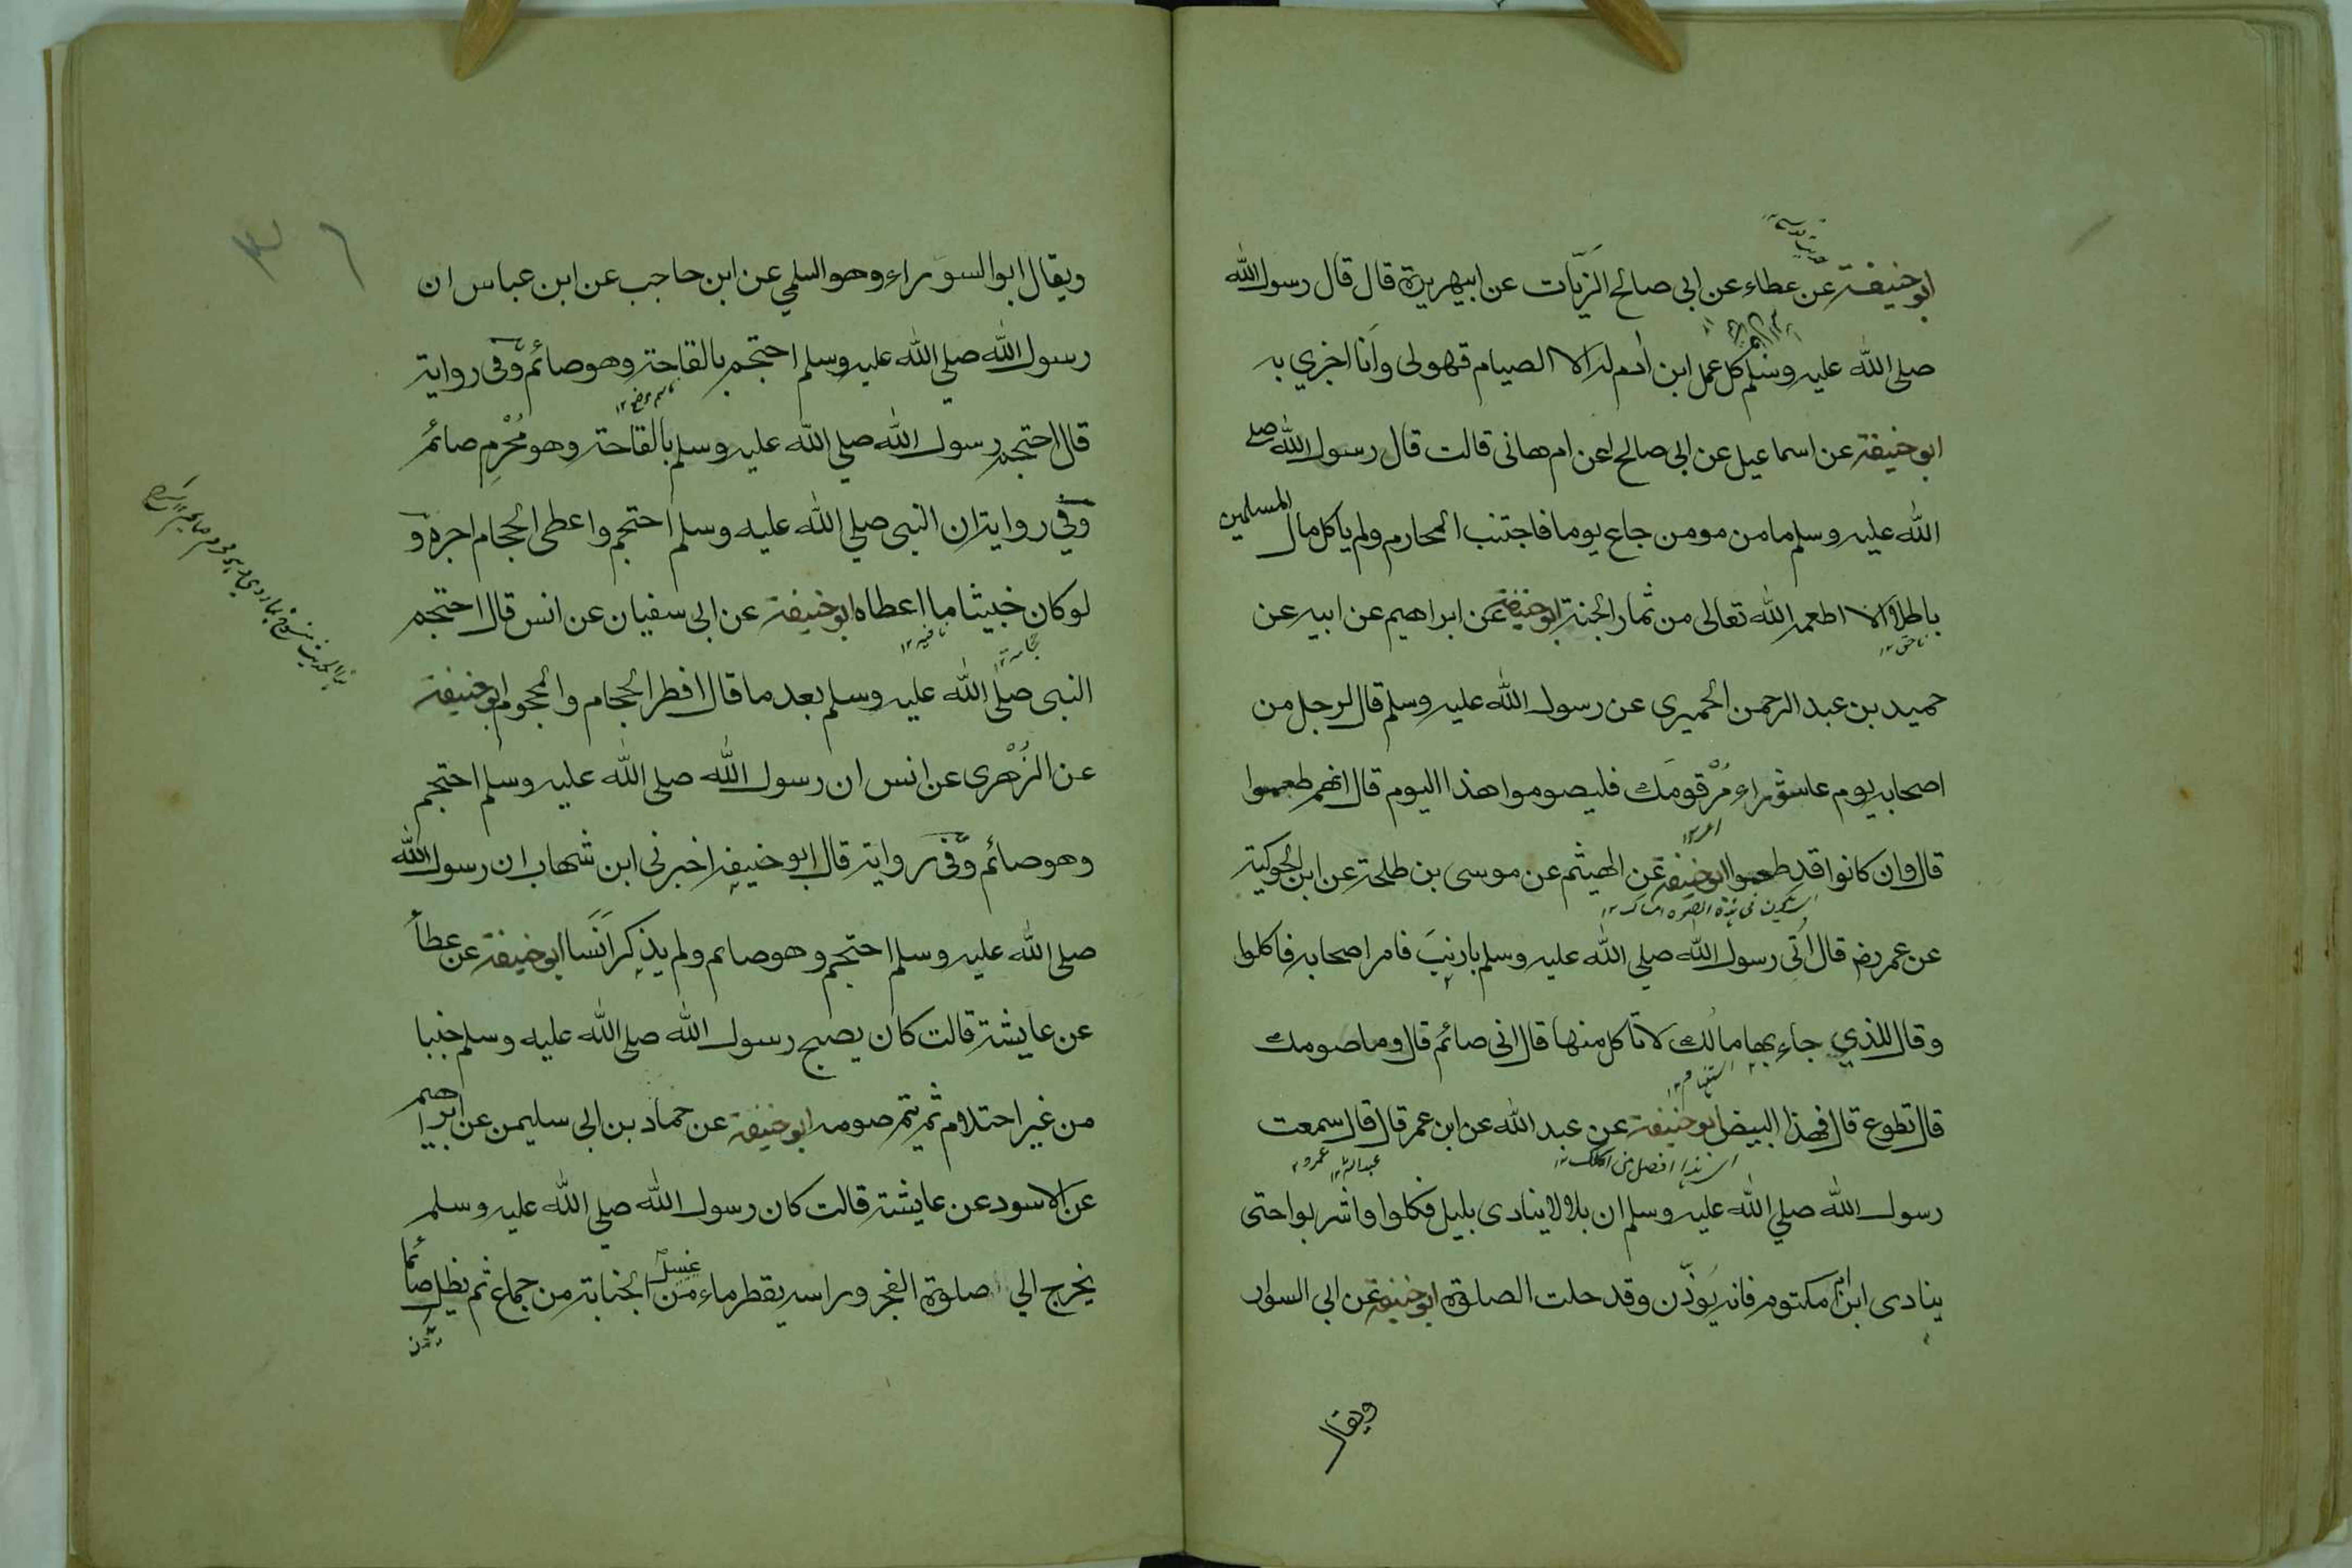 ابوحنيفة عن عطاء عن ابى صالح الزّيّات عن ابيهريرة قال قال رسول الله
صلى الله عليه وسلم كل عمل ابن أدم له الا الصيام فهو لى وَأنا اجزي به
ابوحنيفة عن اسماعيل عن ابى صالح عن ام هانى قالت قال رسول الله صلى
الله عليه وسلم ما من مومن جاع يوما فاجتنب المحارم ولم ياكل مال المسلمين
باطلا الا اطعمه الله تعالى من ثمار الجنة ابوحنيفة عن ابراهيم عن ابيه عن
حميد بن عبد الرحمن الحميرى عن رسول الله عليه وسلم قال لرجل من
اصحابه يوم عاشوراء مُرْ قومَك فليصوموا هذا اليوم قال انهم طعموا
قال وان كانوا قد طعموا ابوحنيفة عن الهيثم عن موسى بن طلحة عن ابن الحوكية
عن عمر رضه قال اُتى رسول الله صلي الله عليه وسلم بارنب فامر اصحابه فاكلوا
وقال للذي جاء بها مالك لا تاكل منها قال انى صائم قال وما صومك
استفهام ١٢
قال تطوع قال فهذا البيض ابوحنيفة عن عبد الله عن ابن عمر قال قال سمعت
رسول الله صلي الله عليه وسلم ان بلالا ينادى بليل فكلوا واشربوا حتى
ينادى ابن ام مكتوم فانه يؤذّن وقد حلت الصلوة ابوحنيفة عن ابى السوار
ويقال
ويقال ابوالسوراء وهو السلمي عن ابن حاجب عن ابن عباس ان
رسول الله صلي الله عليه وسلم احتجم بالقاحة وهو صائم وفى رواية
قال احتجم رسول الله صلي الله عليه وسلم بالقاحة وهو مُحْرِم صائم
وفي رواية ان النبى صلي الله عليه وسلم احتجم واعطى الحجام اجره و
لو كان خبيثا ما اعطاه ابوحنيفة عن ابى سفيان عن انس قال احتجم
النبى صلى الله عليه وسلم بعد ما قال افطر الحجام والمحجوم ابوحنيفة
عن الزُهْرى عن انس ان رسول الله صلى الله عليه وسلم احتجم
وهو صائم وفى رواية قال ابو حنيفه اخبرنى ابن شهاب ان رسول الله
صلى الله عليه وسلم احتجم وهو صائم ولم يذكر انَسَا ابوحنيفة عن عطأ
عن عايشة قالت كان يصبح رسول الله صلى الله عليه وسلم جنبا
من غير احتلام ثم يتم صومه ابوحنيفة عن حماد بن ابى سليمن عن ابراهيم
عن الاسود عن عايشة قالت كان رسول الله صلي الله عليه وسلم
يخرج الي صلوة الفجر وراسه يقطر ماء من غسل الجنابة من جماع ثم يظل صائما